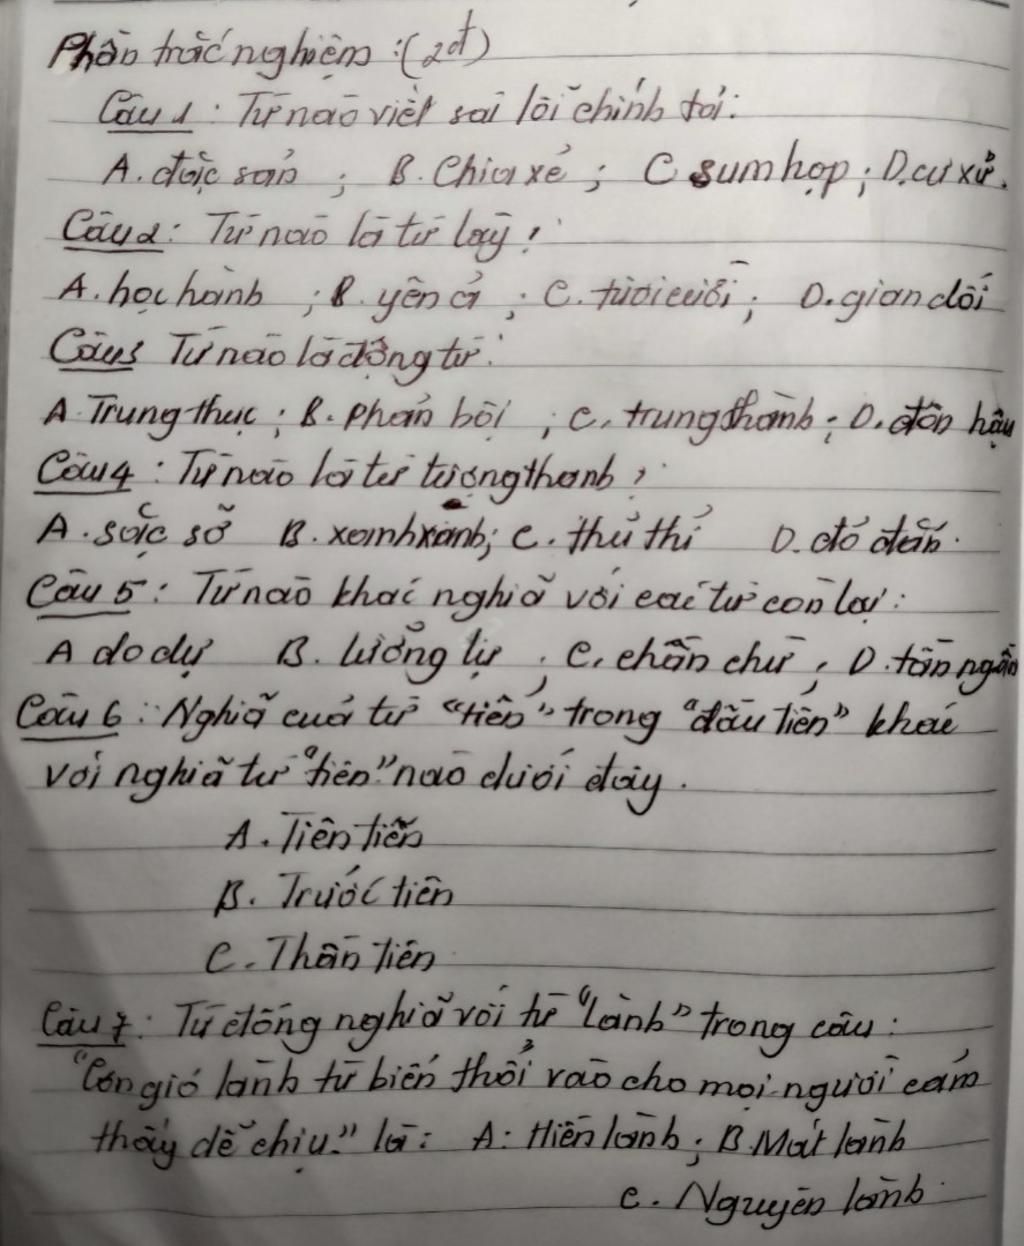 Phần trắc nghiệm: (2đ)
Câu 1: Từ nào viết sai lỗi chính tả:
A. đặc sản; B. Chia xẻ; C sum họp; D. cư xử.
Câu 2: Từ nào là từ láy?
A. học hành; B. yên ả; C. tươi cười; D. gian dối
Câu 3 Từ nào là động từ:
A Trung thực; B. phản bội; C. trung thành; D. đôn hậu
Câu 4: Từ nào là từ tượng thanh?
A. sặc sỡ B. xanh xanh; C. thủ thỉ D. đỏ đắn.
Câu 5: Từ nào khác nghĩa với các từ còn lại:
A do dự B. lưỡng lự; C. chần chừ; D. tần ngần
Câu 6: Nghĩa của từ "tiên" trong "đầu tiên" khác
với nghĩa từ "tiên" nào dưới đây.
A. Tiên tiến
B. Trước tiên
C. Thần tiên
Câu 7: Từ đồng nghĩa với từ "lành" trong câu:
"Cơn gió lành từ biển thổi vào cho mọi người cảm
thấy dễ chịu." là: A: Hiền lành; B. Mát lành
C. Nguyên lành.